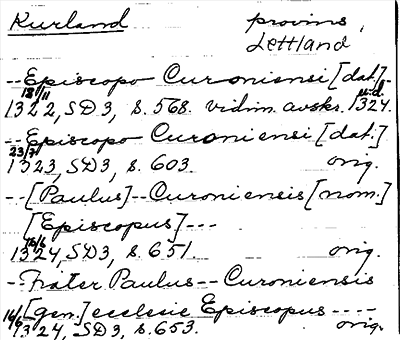 Kurland provins,
Lettland
-- Episcopo Curoniensi [dat.] --
18/11
1322, SD3, s. 568. vidim. avskr. 1324.
-- Episcopo Curoniensi [dat.]
23/7
1323, SD3, s. 603. orig.
-- [Paulus] -- Curoniensis [nom.]
[Episcopus] ---
1324, SD3, s. 651. orig.
-- Frater Paulus -- Curoniensis
[gen.] ecclesie Episcopus ----
1324, SD3, s. 653. orig.